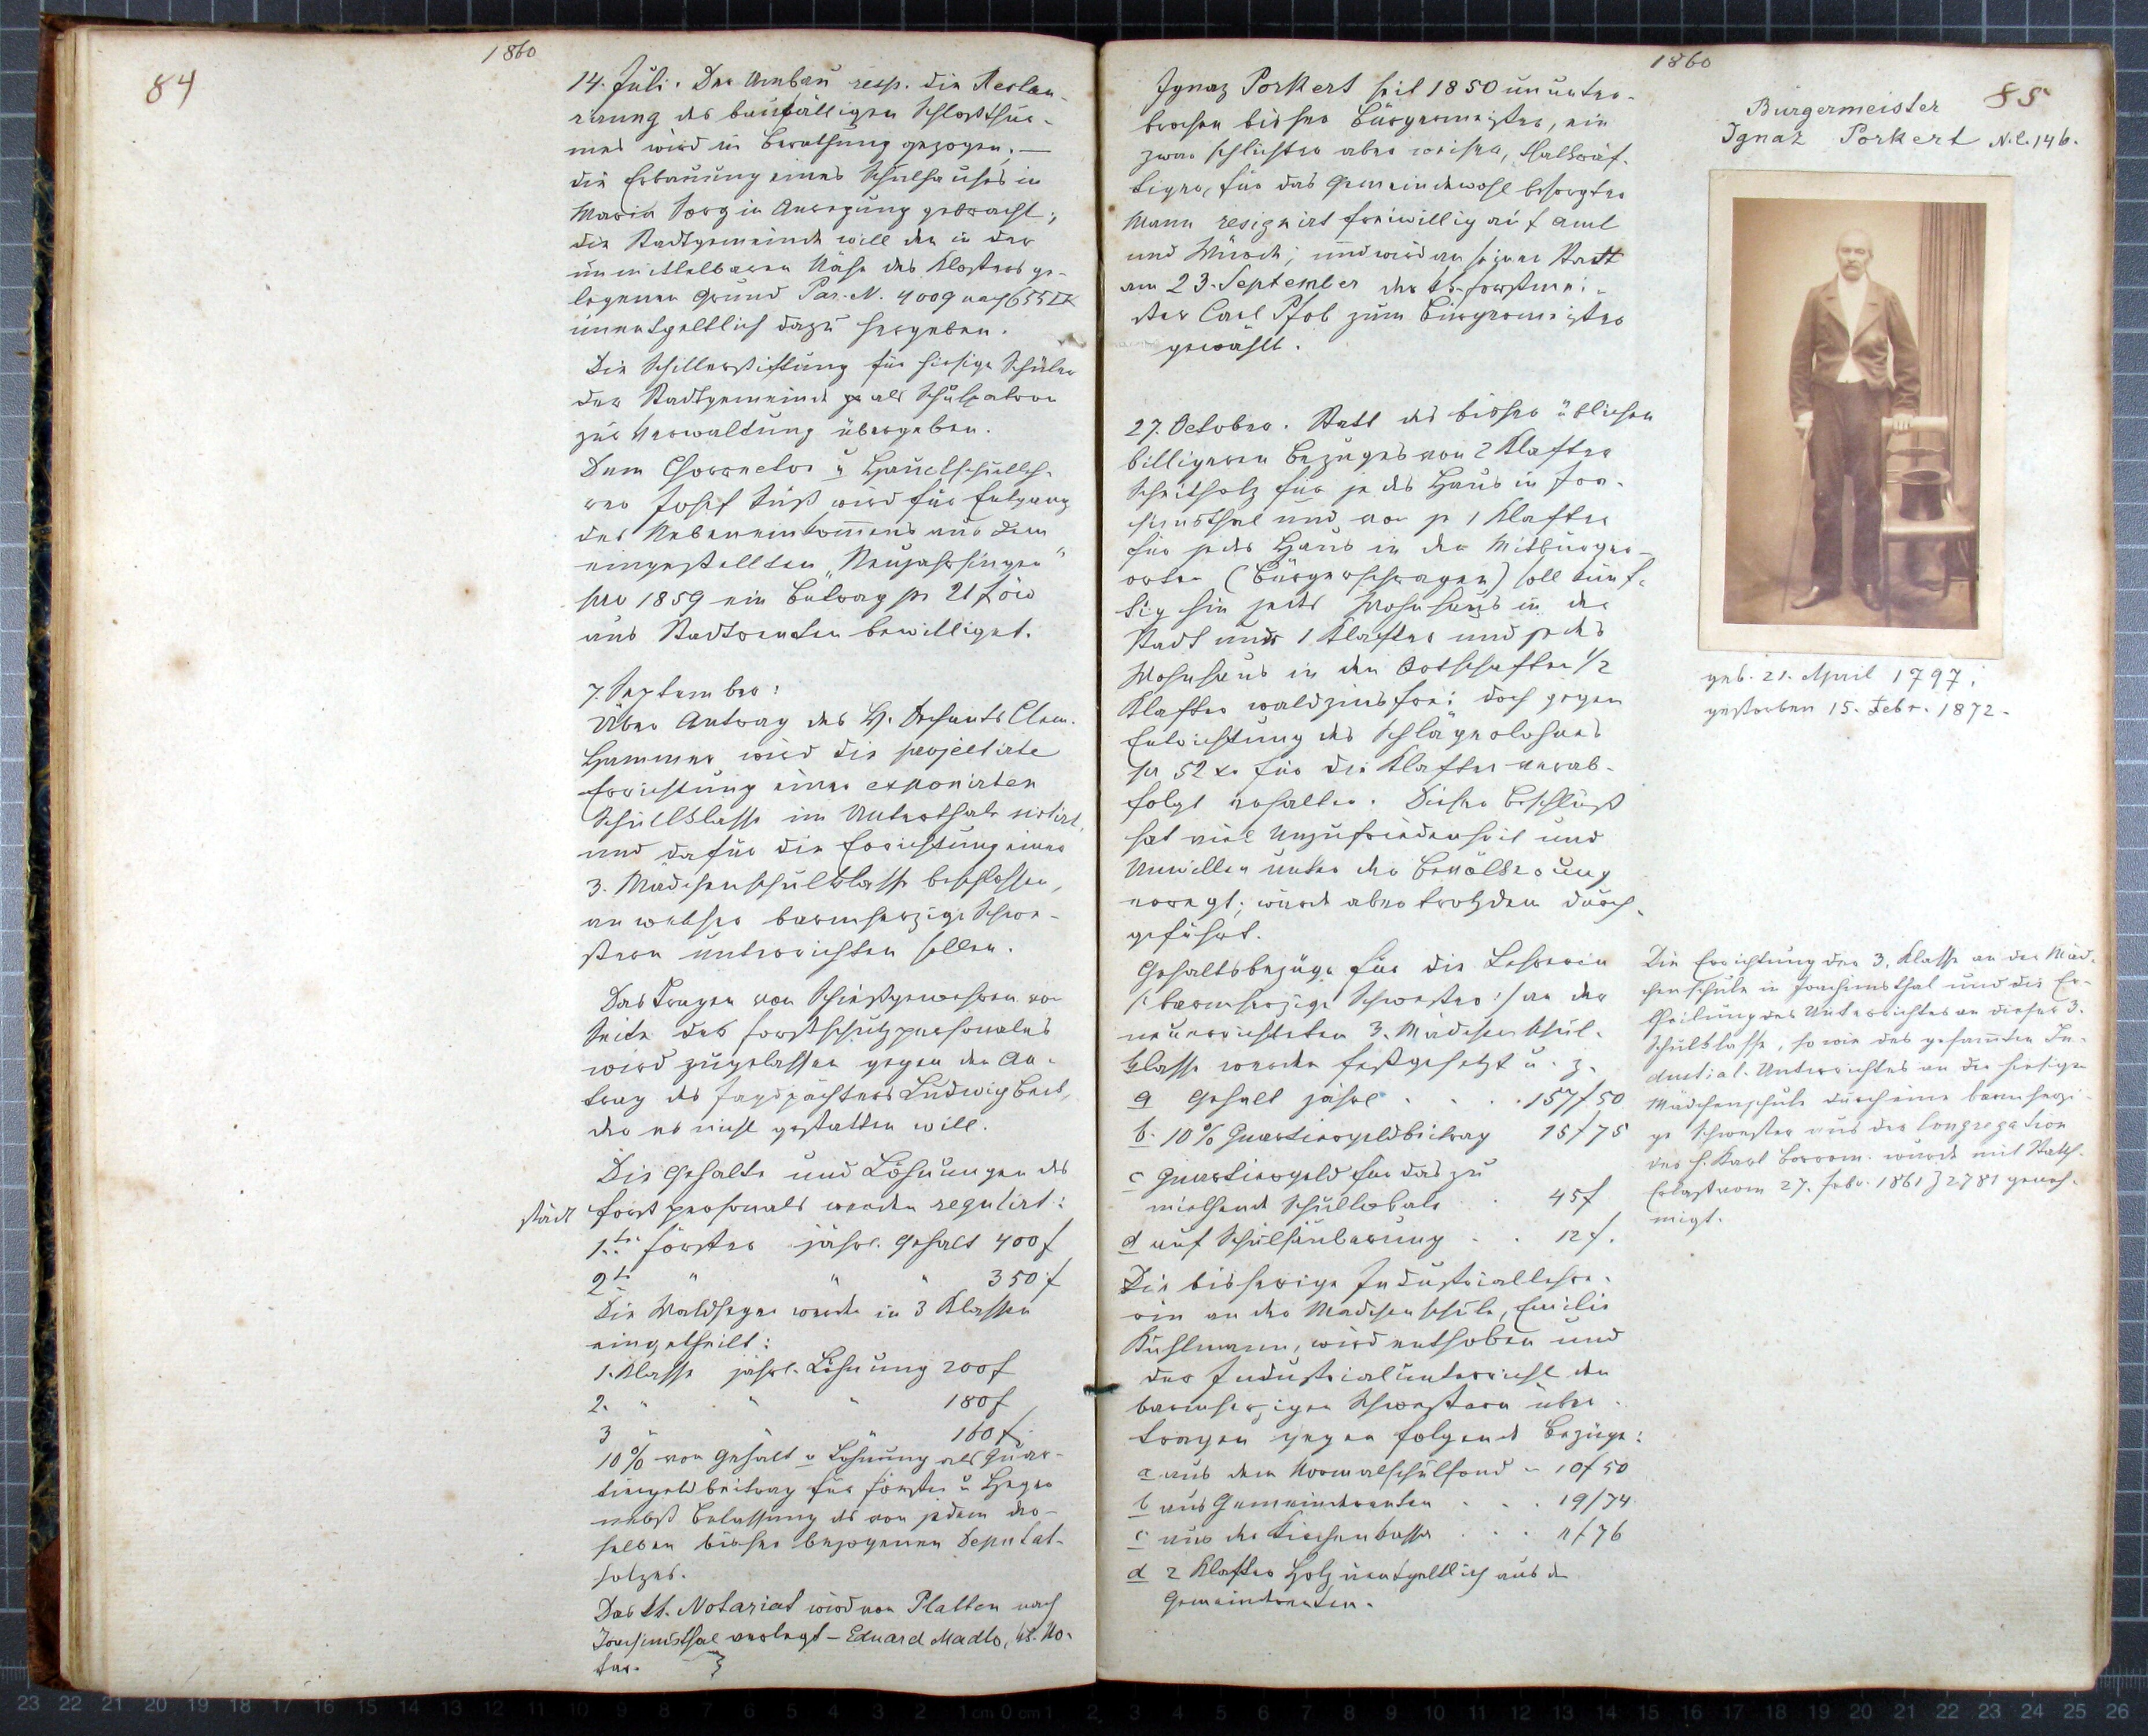 84
1860
14. Juli. Der Umbau resp. die Restau-
rirung des baufälligen Schloßthur-
mes wird in Berathung gezogen. —
die Erbauung eines Schulhauses in
Maria Sorg in Anregung gebracht;
die Stadtgemeinde will den in der
unmittelbaren Nähe des Klosters ge-
legenen Grund Par. N. 4009 nach 655 □K
unentgeltlich dazu hergeben.
Die Schillerstiftung für hiesige Schüler
der Stadtgemeinde als Schulpatron
zur Verwaltung übergeben.
Dem Chorrector u Hauptschulleh-
rer Josef Süß wird für Entgang
des Nebeneinkommens aus dem
eingestellten „Neujahrsingen"
pro 1859 ein Betrag pr 21 f öw
aus Stadtrenten bewilliget.
7. September:
Über Antrag des H. Dechants Clem.
Hammer wird die projectirte
Errichtung einer exponirten
Schulklasse im Unterthale sistirt,
und dafür die Errichtung einer
3. Mädchenschulklasse beschlossen,
an welcher barmherzige Schwe-
stern unterrichten sollen.
Das Tragen von Schießgewehren von
Seite des Forstschutzpersonales
wird zugelassen gegen den An-
trag des Jagdpächters Ludwig
der es nicht gestatten will.
Die Gehalte und Löhnungen des
städt Forstpersonals werden regulirt:
1.ter Förster jährl. Gehalt 400 f
2t " " " 350 f
Die Waldheger werden in 3 Klassen
eingetheilt:
1. Klasse jährl. Löhnung 200 f
2. " " " 180 f
3 " " 160 f.
10% von Gehalt u Löhnung als Quar-
tiergeldbeitrag für Förster u Heger
nebst Belassung des von jedem der-
selben bisher bezogenen Deputat-
holzes.
Das kk. Notariat wird von Platten nach
Joachimsthal verlegt – Eduard Madlo, kk. No-
tar.
1860
85
Ignaz Porkert seit 1850 ununter-
brochen bisher Bürgermeister, ein
zwar schlichter aber weiser, thatkräf-
tiger, für das Gemeindewohl besorgter
Mann resignirt freiwillig auf Amt
und Würde; und wird an seiner Statt
am 23. September der kk. Forstmei-
ster Carl Pfob zum Bürgermeister
gewählt.
27. October. Statt des bisher üblichen
billigeren Bezuges von 2 Klafter
Scheitholz für jedes Haus in Joa-
chimsthal und von je 1 Klafter
für jedes Haus in den Mitbürger-
orten (Bürgerschragen) soll künf-
tig hin jedes Wohnhaus in der
Stadt nur 1 Klafter und jedes
Wohnhaus in den Ortschaften 1/2
Klafter waldzinsfrei doch gegen
Entrichtung des Schlägerlohnes
pr 52 xr für die Klafter verab-
folgt erhalten. Dieser Beschluß
hat viel Unzufriedenheit und
Unwillen unter der Bevölkerung
erregt; wurde aber trotzdem durch-
geführt.
Gehaltsbezüge für die Lehrerin
/: barmherzige Schwester :/ an der
neuerrichteten 3. Mädchenschul-
klasse werden festgesetzt u. z.
a Gehalt jährl . . . 157 f 50
b. 10% Quartiergeldbeitrag 15 f 75
c Quartiergeld für das zu
miethende Schullokale . 45 f
d auf Schulsäuberung . . 12 f.
Die bisherige Industriallehre-
rin an der Mädchenschule, Emilie
Kuhlmann, wird enthoben und
der Industrialunterricht den
barmherzigen Schwestern über-
tragen gegen folgende Bezüge:
a aus dem Normalschulfond - 10 f 50
b aus Gemeinderenten . . . 19 f 74
c aus der Kirchenkasse . . . f 76
d 2 Klafter Holz unentgeltlich aus den
Gemeinderenten.
Bürgermeister
Ignaz Porkert N.C. 146.
geb. 21. April 1797;
gestorben 15. Febr. 1872.
Die Errichtung der 3. Klasse an der Mäd-
chenschule in Joachimsthal und die Er-
theilung des Unterrichtes an dieser 3.
Schulklasse, so wie des gesammten In-
dustrial-Unterrichtes an der hiesigen
Mädchenschule durch eine barmherzi-
ge Schwester aus der Congregation
des h. Karl Borrom. wurde mit Statth.
Erlaß vom 27. Febr. 1861 Z 2781 geneh-
migt.